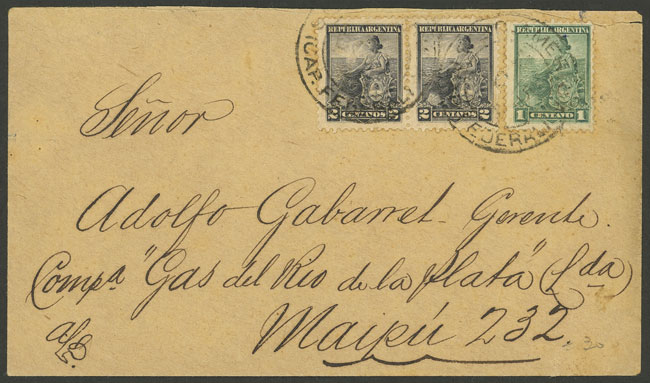 REPUBLICA ARGENTINA REPUBLICA ARGENTINA REPUBLICA ARGENTINA
2 CENTAVOS 2 2 CENTAVOS 2 1 CENTAVO 1
(CAP. FE
Señor
Adolfo Gabarret - Gerente.
Compª "Gas del Rio de la Plata" (Lda)
Maipú 232.
30